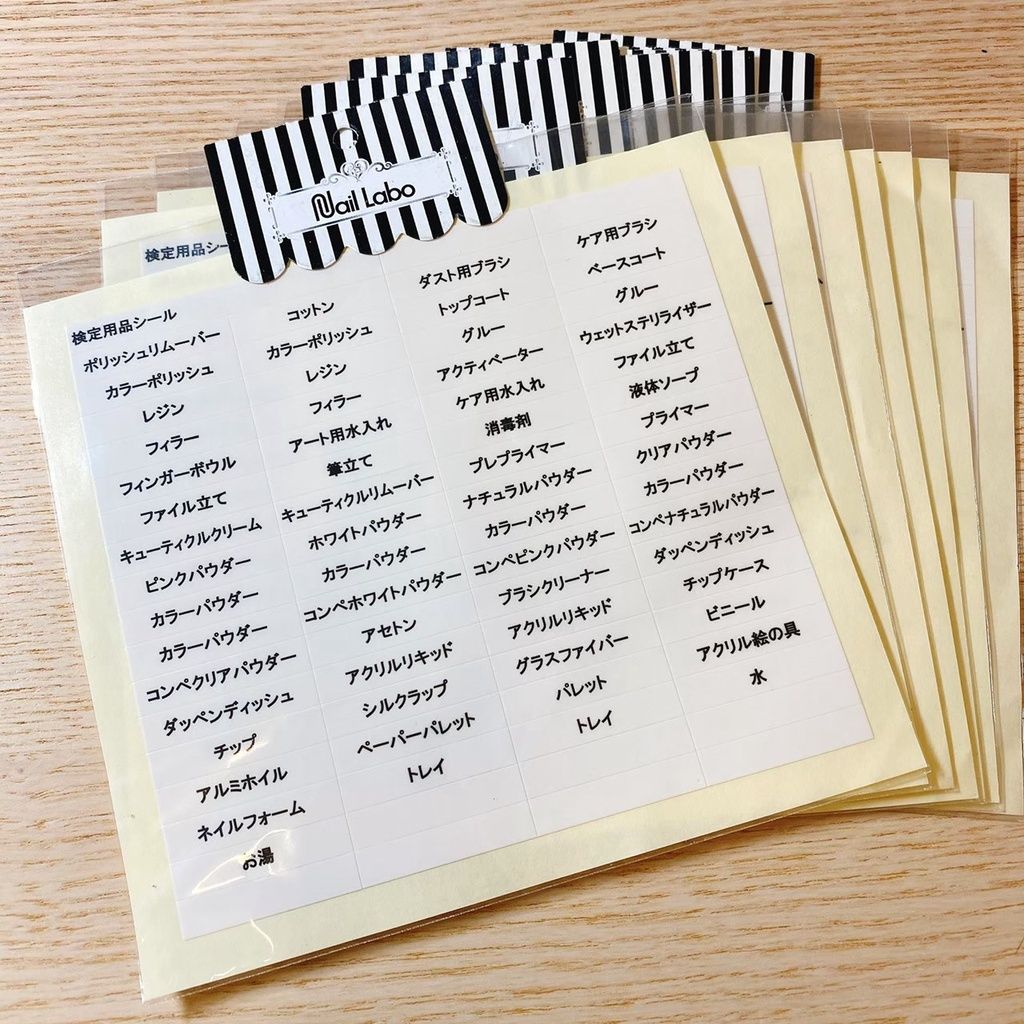 Nail Labo
検定用品シー
検定用品シール
ポリッシュリムーバー コットン ダスト用ブラシ ケア用ブラシ
カラーポリッシュ カラーポリッシュ トップコート ベースコート
レジン レジン グルー グルー
フィラー フィラー アクティベーター ウェットステリライザー
フィンガーボウル アート用水入れ ケア用水入れ ファイル立て
ファイル立て 筆立て 消毒剤 液体ソープ
キューティクルクリーム キューティクルリムーバー プレプライマー プライマー
ピンクパウダー ホワイトパウダー ナチュラルパウダー クリアパウダー
カラーパウダー カラーパウダー カラーパウダー カラーパウダー
カラーパウダー コンペホワイトパウダー コンペピンクパウダー コンペナチュラルパウダー
コンペクリアパウダー アセトン ブラシクリーナー ダッペンディッシュ
ダッペンディッシュ アクリルリキッド アクリルリキッド チップケース
チップ シルクラップ グラスファイバー ビニール
アルミホイル ペーパーパレット パレット アクリル絵の具
ネイルフォーム トレイ トレイ 水
お湯